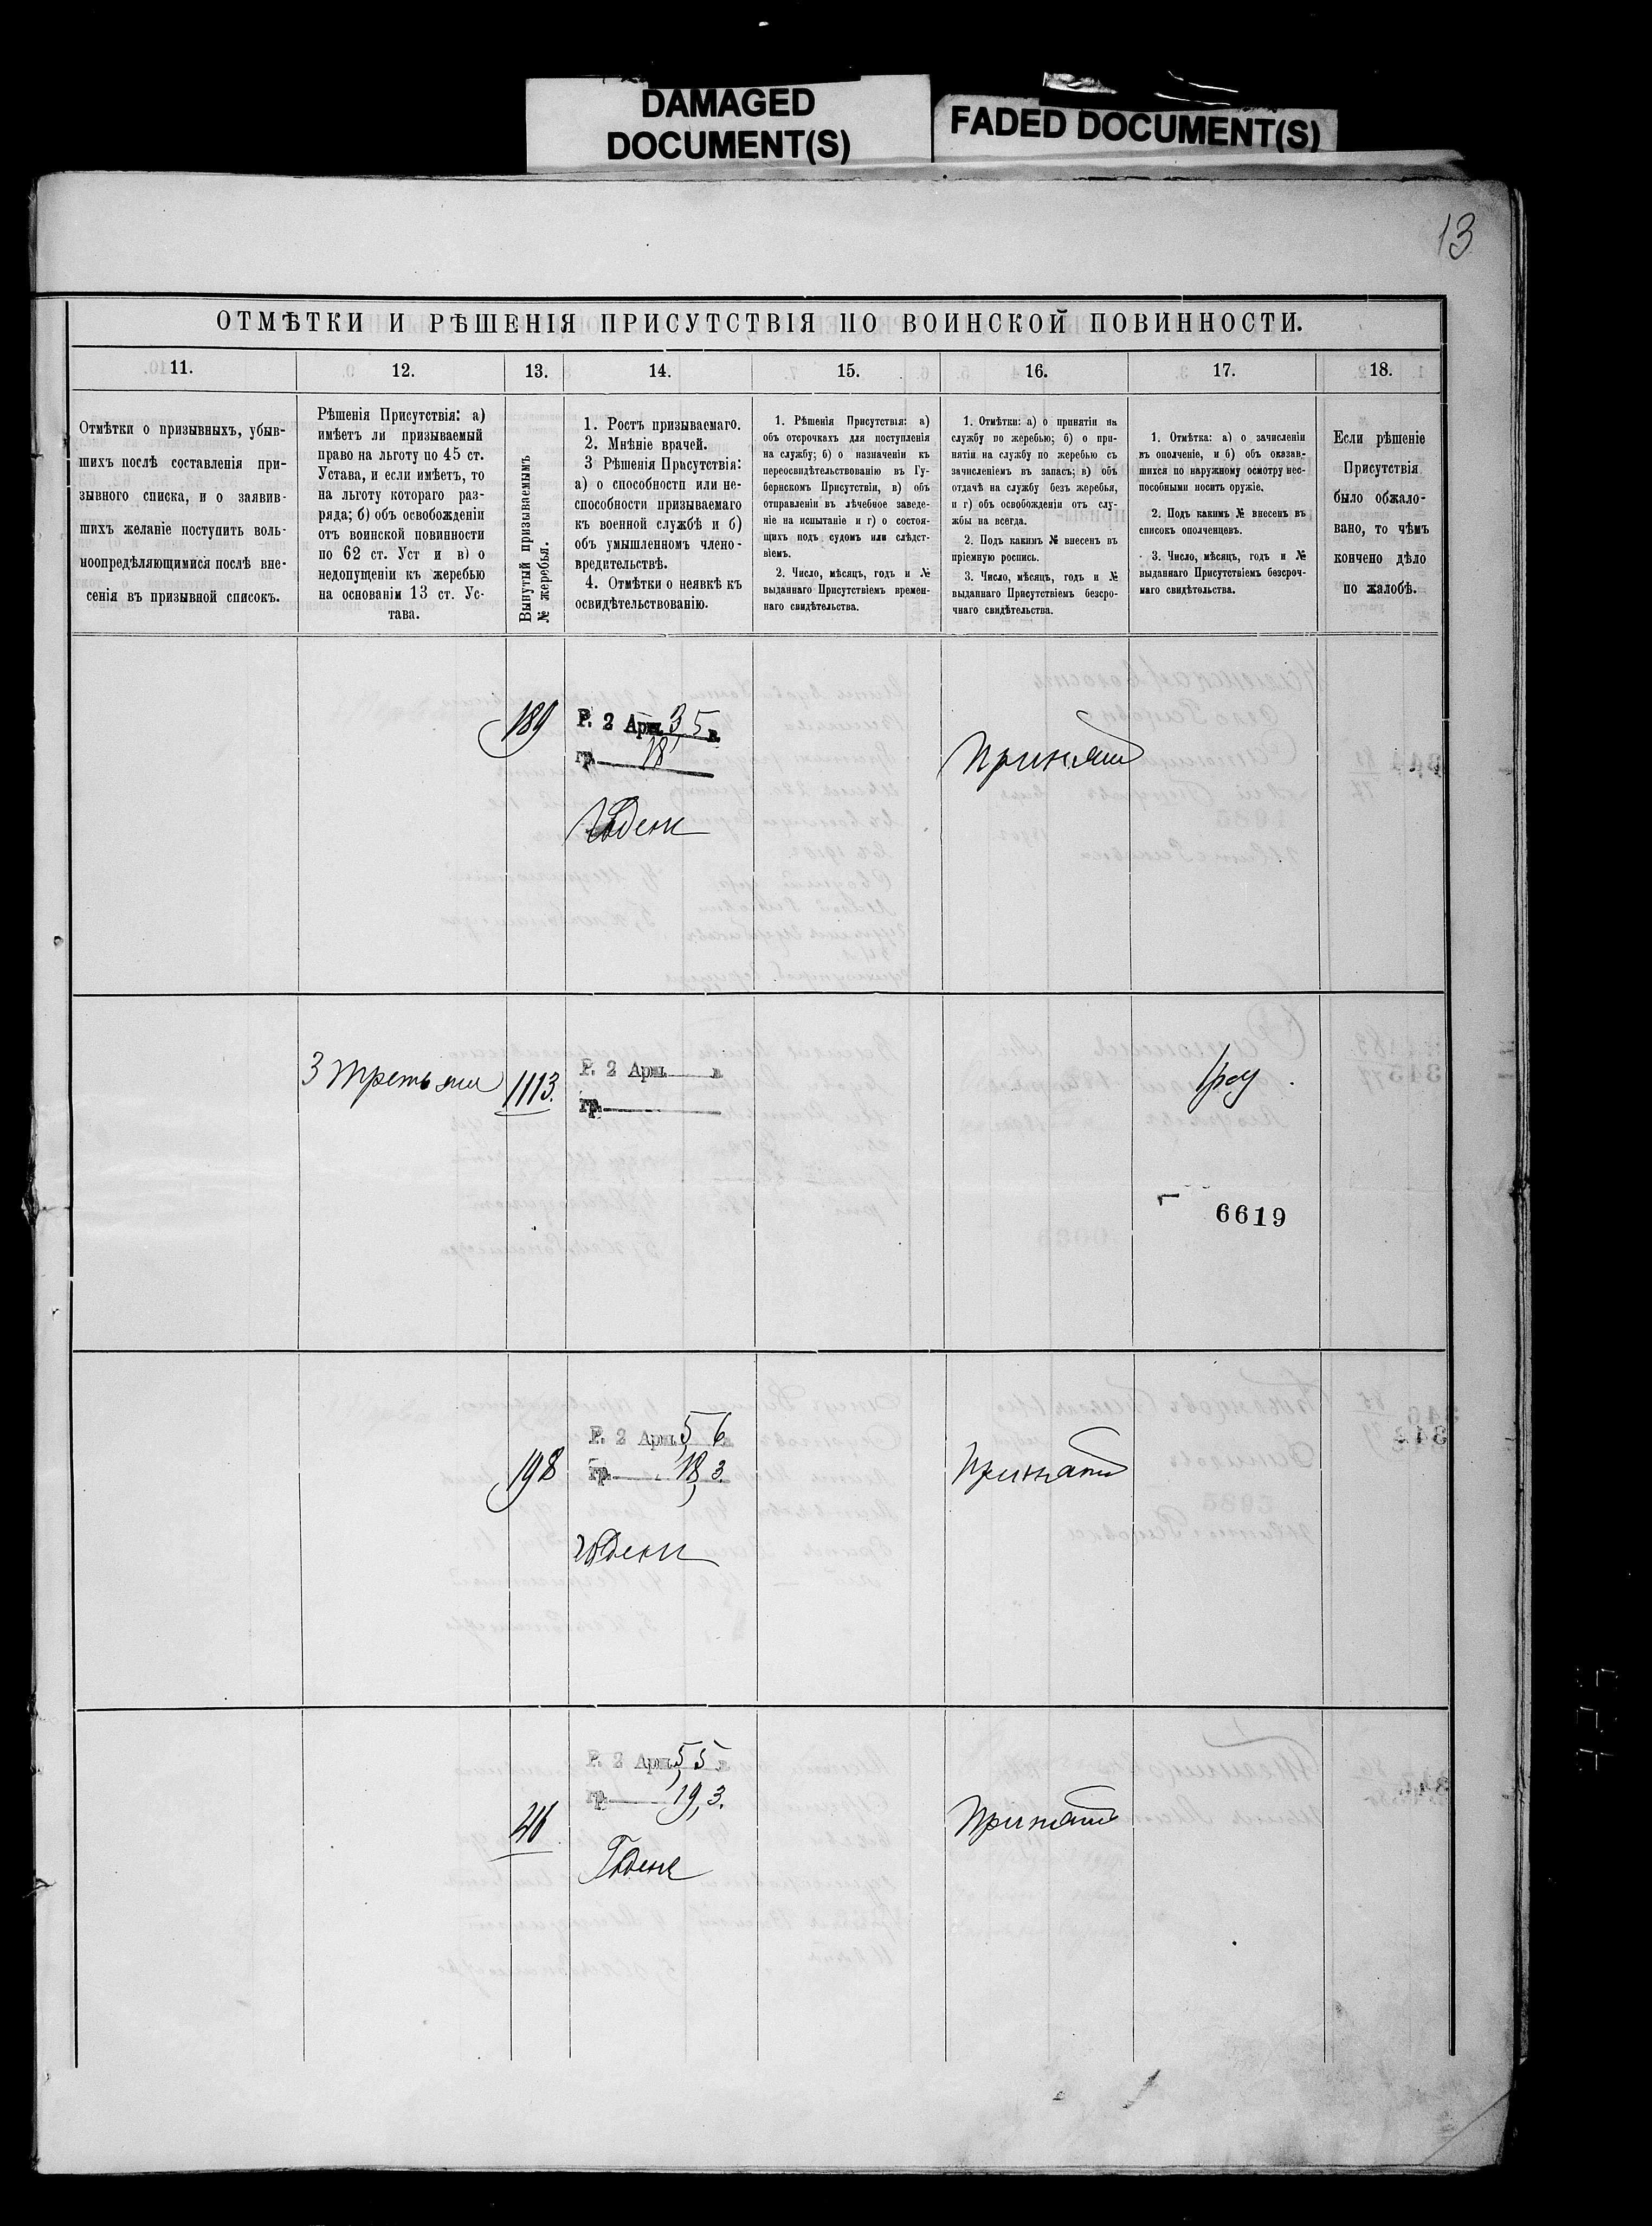 DAMAGED
DOCUMENT(S)
FADED DOCUMENT(S)
13
ОТМѢТКИ И РѢШЕНІЯ ПРИСУТСТВІЯ ПО ВОИНСКОЙ ПОВИННОСТИ.
11.
12.
13.
14.
15.
16.
17.
18.
Отмѣтки о призывныхъ, убыв-
шихъ послѣ составленія при-
зывного списка, и о заявив-
шихъ желаніе поступить воль-
ноопредѣляющимися послѣ вне-
сенія въ призывной списокъ.
Рѣшенія Присутствія: а)
имѣетъ ли призываемый
право на льготу по 45 ст.
Устава, и если имѣетъ, то
на льготу котораго раз-
ряда; б) объ освобожденіи
отъ воинской повинности
по 62 ст. Уст и в) о
недопущеніи къ жеребью
на основаніи 13 ст. Ус-
тава.
Вынутый призываемымъ
№ жеребья.
1. Ростъ призываемаго.
2. Мнѣніе врачей.
3 Рѣшенія Присутствія:
а) о способности или не-
способности призываемаго
къ военной службѣ и б)
объ умышленномъ члено-
вредительствѣ.
4. Отмѣтки о неявкѣ къ
освидѣтельствованію.
1. Рѣшенія Присутствія: а)
объ отсрочкахъ для поступленія
на службу; б) о назначеніи къ
переосвидѣтельствованію въ Гу-
бернскомъ Присутствіи, в) объ
отправленіи въ лѣчебное заведе-
ніе на испытаніе и г) о состоя-
щихъ подъ судомъ или слѣдст-
віемъ.
2. Число, мѣсяцъ, годъ и №
выданнаго Присутствіемъ времен-
наго свидѣтельства.
1. Отмѣтки: а) о принятіи на
службу по жеребью; б) о при-
нятіи на службу по жеребью съ
зачисленіемъ въ запасъ; в) объ
отдачѣ на службу безъ жеребья,
и г) объ освобожденіи отъ слу-
жбы на всегда.
2. Подъ какимъ № внесенъ въ
пріемную роспись.
3. Число, мѣсяцъ, годъ и №
выданнаго Присутствіемъ безсро-
чнаго свидѣтельства.
1. Отмѣтка: а) о зачисленіи
въ ополченіе, и б) объ оказав-
шихся по наружному осмотру нес-
пособными носить оружіе.
2. Подъ какимъ № внесенъ въ
списокъ ополченцевъ.
3. Число, мѣсяцъ, годъ и №
выданнаго Присутствіемъ безсроч-
наго свидѣтельства.
Если рѣшеніе
Присутствія
было обжало-
вано, то чѣмъ
кончено дѣло
по жалобѣ.
189
Р. 2 Арш. 3,5 в.
гр. 18
Годенъ
Принятъ
3 третьяго
1113.
Р. 2 Арш. в.
гр.
6619
198
Р. 2 Арш. 5,6 в.
гр. 18,3.
Годенъ
Принятъ
Р. 2 Арш. 5,5 в.
гр. 19,3.
Годенъ
Принятъ